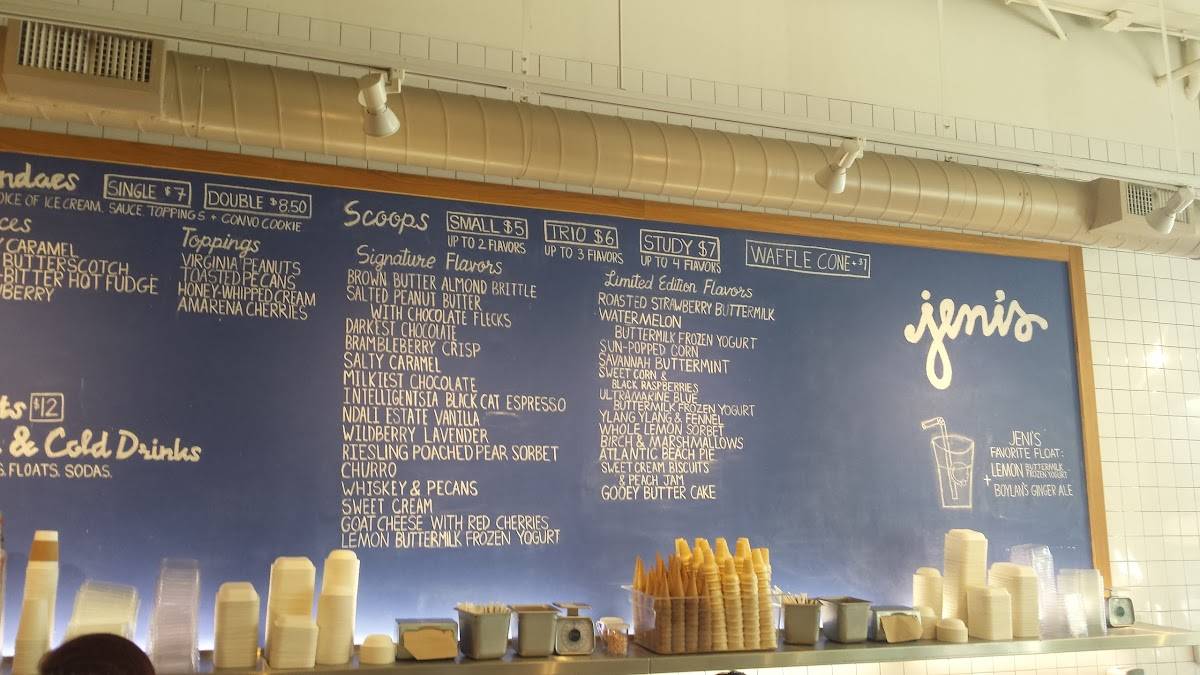 ndaes SINGLE $7 DOUBLE $8.50
OICE OF ICE CREAM, SAUCE, TOPPINGS + GONVO COOKIE
ces
CARAMEL
BUTTERSCOTCH
-BITTER HOT FUDGE
BERRY
Toppings
VIRGINIA PEANUTS
TOASTED PECANS
HONEY-WHIPPED CREAM
AMARENA CHERRIES
ts $12
& Cold Drinks
S. FLOATS. SODAS.
Scoops
SMALL $5
UP TO 2 FLAVORS
TRIO $6
UP TO 3 FLAVORS
STUDY $7
UP TO 4 FLAVORS
WAFFLE CONE +$1
Signature Flavors
BROWN BUTTER ALMOND BRITTLE
SALTED PEANUT BUTTER
WITH CHOCOLATE FLECKS
DARKEST CHOCOLATE
BRAMBLEBERRY CRISP
SALTY CARAMEL
MILKIEST CHOCOLATE
INTELLIGENTSIA BLACK CAT ESPRESSO
NDALI ESTATE VANILLA
WILDBERRY LAVENDER
RIESLING POACHED PEAR SORBET
CHURRO
WHISKEY & PECANS
SWEET CREAM
GOAT CHEESE WITH RED CHERRIES
LEMON BUTTERMILK FROZEN YOGURT
Limited Edition Flavors
ROASTED STRAWBERRY BUTTERMILK
WATERMELON
BUTTERMILK FROZEN YOGURT
SUN-POPPED CORN
SAVANNAH BUTTERMINT
SWEET CORN &
BLACK RASPBERRIES
ULTRAMARINE BLUE
BUTTERMILK FROZEN YOGURT
YLANG YLANG & FENNEL
WHOLE LEMON SORBET
BIRCH & MARSHMALLOWS
ATLANTIC BEACH PIE
SWEET CREAM BISCUITS
& PEACH JAM
GOOEY BUTTER CAKE
jeni's
JENI'S
FAVORITE FLOAT:
LEMON BUTTERMILK FROZEN YOGURT
+ BOYLAN'S GINGER ALE